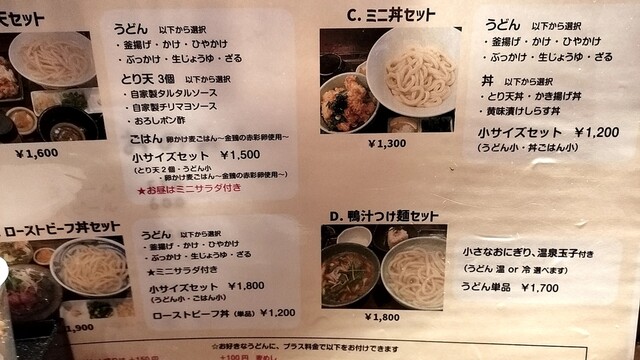 天セット
うどん 以下から選択
・釜揚げ・かけ・ひやかけ
・ぶっかけ・生じょうゆ・ざる
とり天3個 以下から選択
・自家製タルタルソース
・自家製チリマヨソース
・おろしポン酢
ごはん 卵かけ麦ごはん〜金鶏の赤彩卵使用〜
小サイズセット ￥1,500
(とり天2個・うどん小
・卵かけ麦ごはん〜金鶏の赤彩卵使用〜)
★お昼はミニサラダ付き
￥1,600
C. ミニ丼セット
うどん 以下から選択
・釜揚げ・かけ・ひやかけ
・ぶっかけ・生じょうゆ・ざる
丼 以下から選択
・とり天丼・かき揚げ丼
・黄味漬けしらす丼
小サイズセット ￥1,200
(うどん小・丼ごはん小)
￥1,300
ローストビーフ丼セット
うどん 以下から選択
・釜揚げ・かけ・ひやかけ
・ぶっかけ・生じょうゆ・ざる
★ミニサラダ付き
小サイズセット ￥1,800
(うどん小・ごはん小)
ローストビーフ丼 (単品) ￥1,200
,900
D. 鴨汁つけ麺セット
小さなおにぎり、温泉玉子付き
(うどん 温 or 冷 選べます)
うどん単品 ￥1,700
￥1,800
☆お好きなうどんに、プラス料金で以下をお付けできます
+150円
+100円 麦めし